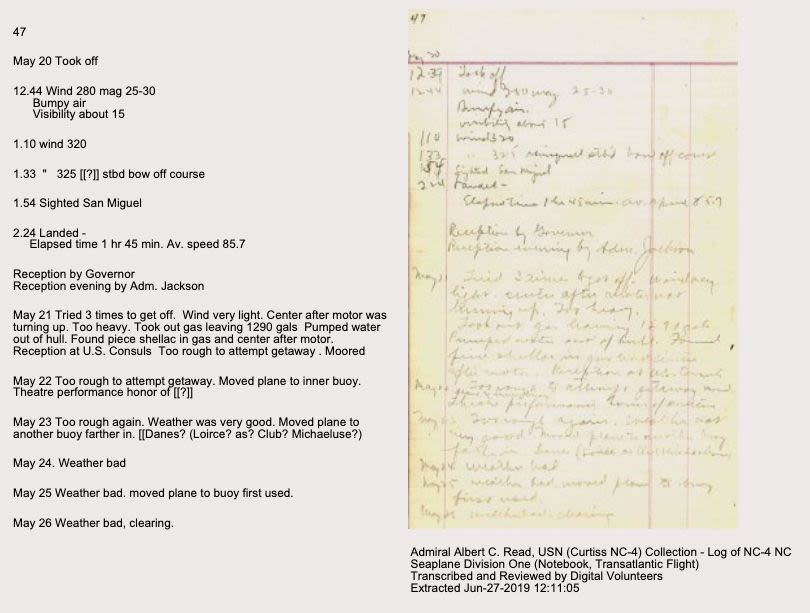 47
May 20 Took off
12.44 Wind 280 mag 25-30
Bumpy air
Visibility about 15
1.10 wind 320
1.33 " 325 [[?]] stbd bow off course
1.54 Sighted San Miguel
2.24 Landed -
Elapsed time 1 hr 45 min. Av. speed 85.7
Reception by Governor
Reception evening by Adm. Jackson
May 21 Tried 3 times to get off. Wind very light. Center after motor was
turning up. Too heavy. Took out gas leaving 1290 gals Pumped water
out of hull. Found piece shellac in gas and center after motor.
Reception at U.S. Consuls Too rough to attempt getaway . Moored
May 22 Too rough to attempt getaway. Moved plane to inner buoy.
Theatre performance honor of [[?]]
May 23 Too rough again. Weather was very good. Moved plane to
another buoy farther in. [[Danes? (Loirce? as? Club? Michaeluse?)
May 24. Weather bad
May 25 Weather bad. moved plane to buoy first used.
May 26 Weather bad, clearing.
47
May 20
12.39 Took off
12.44 Wind 280 mag 25-30
Bumpy air.
visibility about 15
1.10 wind 320
1.33 " 325 stbd bow off course
1.54 Sighted San Miguel
2.24 Landed -
Elapsed time 1 hr 45 min. av. speed 85.7
Reception by Governor
Reception evening by Adm. Jackson
May 21 Tried 3 times to get off. Wind very
light. center after motor not
turning up. Too heavy.
Took out gas leaving 1290 gals
Pumped water out of hull. Found
piece shellac in gas and center
after motor. Reception at
May 22 Too rough to attempt getaway
performance honor of
May 23 Too rough again. Weather not
very good. Moved plane to another buoy
farther in.
May 24 weather bad
May 25 weather bad moved plane to buoy
first used
May 26 weather bad, clearing
Admiral Albert C. Read, USN (Curtiss NC-4) Collection - Log of NC-4 NC
Seaplane Division One (Notebook, Transatlantic Flight)
Transcribed and Reviewed by Digital Volunteers
Extracted Jun-27-2019 12:11:05